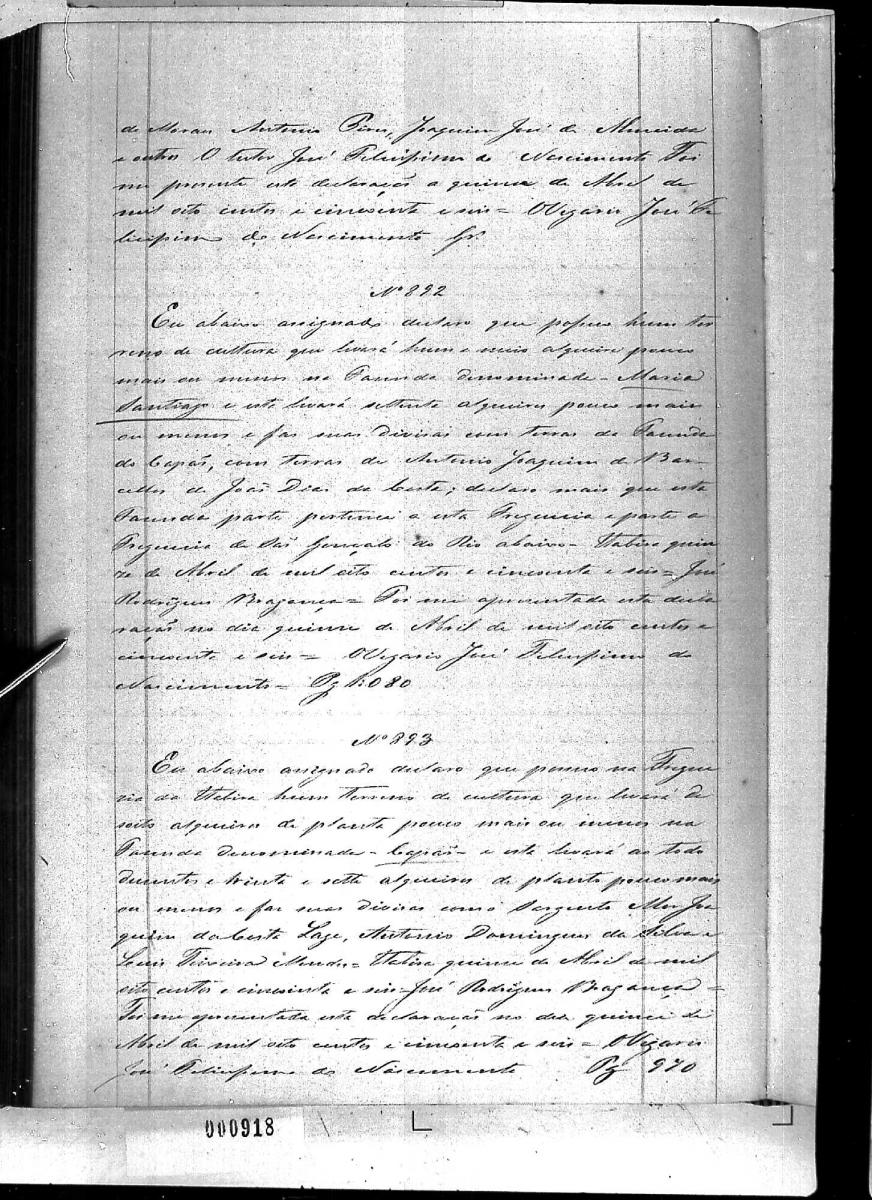 de Moraes Antonio Pires, Joaquim José de Almeida
e outros O tutor José Felicissimo do Nascimento Foi
me presente esta declaração a quinse de Abril de
mil oito centos e cincoenta e seis = O Vigario José Fe
licissimo do Nascimento Gr.
Nº 892
Eu abaixo assignado declaro que possuo hum ter
reno de cultura que levará hum e meio alqueire pouco
mais ou menos na Fasenda denominada - Maria
Santiago e esta levará settenta alqueires pouco mais
ou menos e fas suas divisas com terras da Fasenda
do Capão, com terras de Antonio Joaquim de Bar
cellos de João Dias da Costa; declaro mais que esta
Fasenda parte pertence a esta Freguesia e parte a
Freguesia de São Gonçalo do Rio abaixo = Itabira quin
ze de Abril de mil oito centos e cincoenta e seis = José
Rodrigues Bragança = Foi me apresentada esta decla
ração no dia quinse de Abril de mil oito centos e
cincoenta e seis = O Vigario José Felicissimo do
Nascimento = Pg 1:080
Nº 893
Eu abaixo assignado declaro que possuo na Fregue
sia da Itabira hum terreno de cultura que levará de
soito alqueires de planta pouco mais ou menos na
Fasenda denominada - Capão - e esta levará ao todo
dusentos e trinta e sette alqueires de planta pouco mais
ou menos e fas suas divisas com o Sargento Mor Joa
quim da Costa Lage, Antonio Domingues da Silva e
Luis Teixeira Mendes = Itabira quinse de Abril de mil
oito centos e cincoenta e seis - José Rodrigues Bragança =
Foi me apresentada esta declaração no dia quinse de
Abril de mil oito centos e cincoenta e seis = O Vigario
José Felicissimo do Nascimento Pg 970
000918